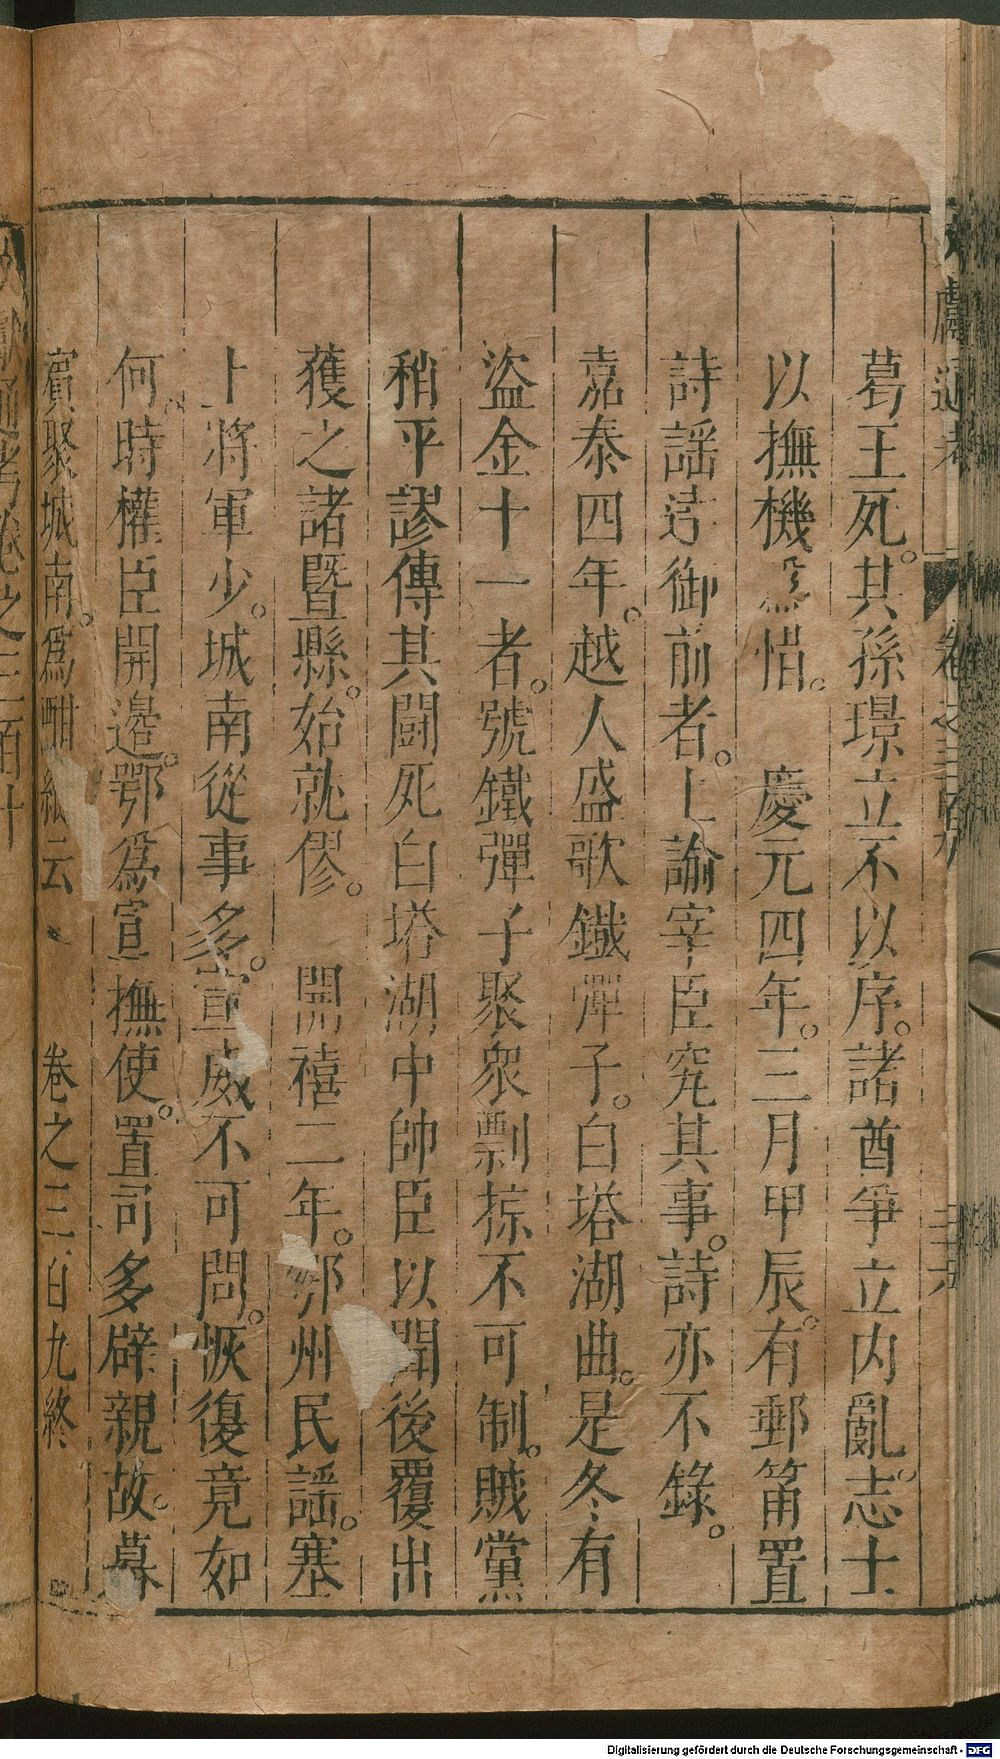 葛王死。其孫璟立不以序。諸酋爭立内亂。志士
以撫機爲惜。　慶元四年。三月甲辰。有郵筩置
詩謡御前者。上諭宰臣究其事。詩亦不錄。
嘉泰四年。越人盛歌鐵彈子。白塔湖曲。是冬有
盜金十一者。號鐵彈子聚衆剽掠不可制。賊黨
稍平謬傳其鬪死白塔湖中帥臣以聞後覆出
獲之諸暨縣。始就僇。　開禧二年。鄂州民謡。塞
上將軍少。城南從事多。宣威不可問。恢復竟如
何。時權臣開邊。鄂爲宣撫使。置司多辟親故。幕
賓聚城南。爲酣縱云　卷之三百九終
通考
卷之三百九
Digitalisierung gefördert durch die Deutsche Forschungsgemeinschaft - DFG